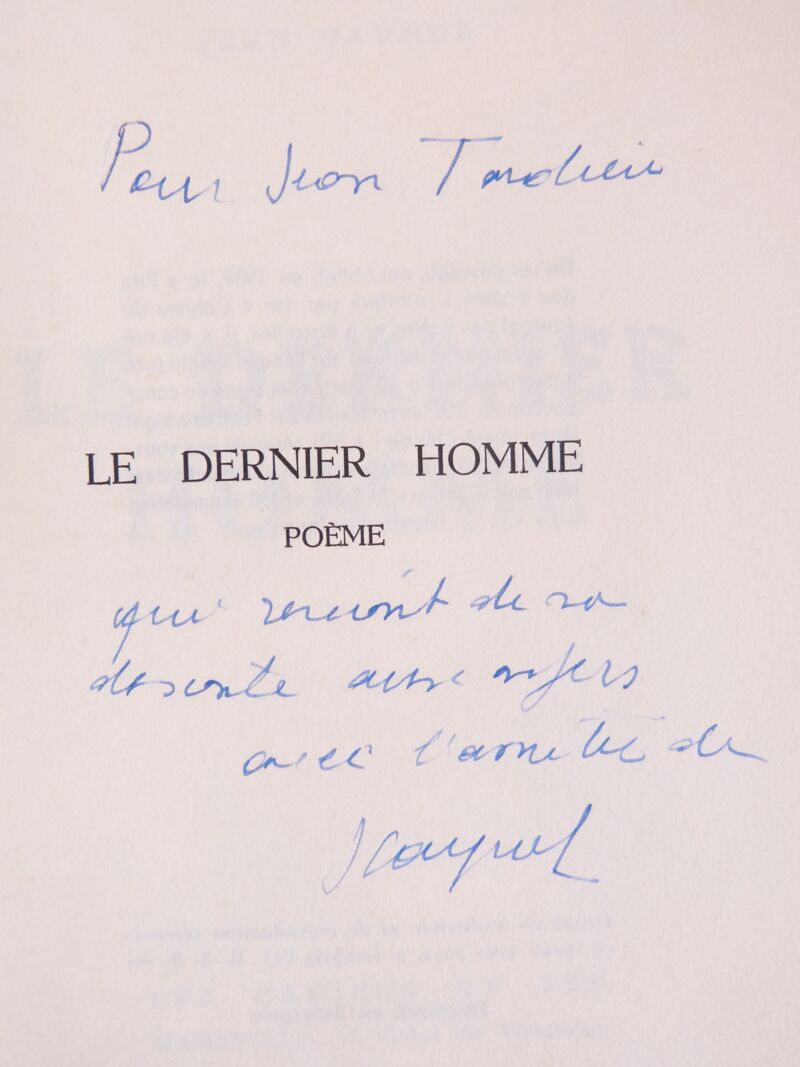 Pour Jean Tardieu
LE DERNIER HOMME
POÈME
qui revient de sa
descente aux enfers
avec l'amitié de
JCayrol